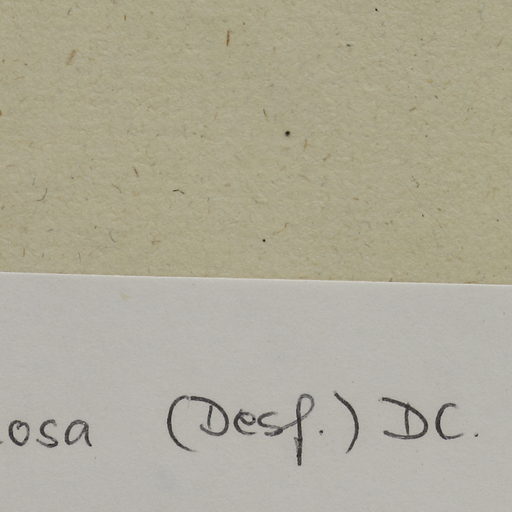 osa (Desf.) DC.